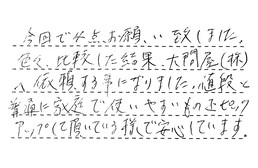 今回で4点お願い致しました。
色々比較した結果、大問屋(株)
へ依頼する事になりました。値段と
普通に家庭で使いやすいものをピック
アップして頂いている様で安心しています。